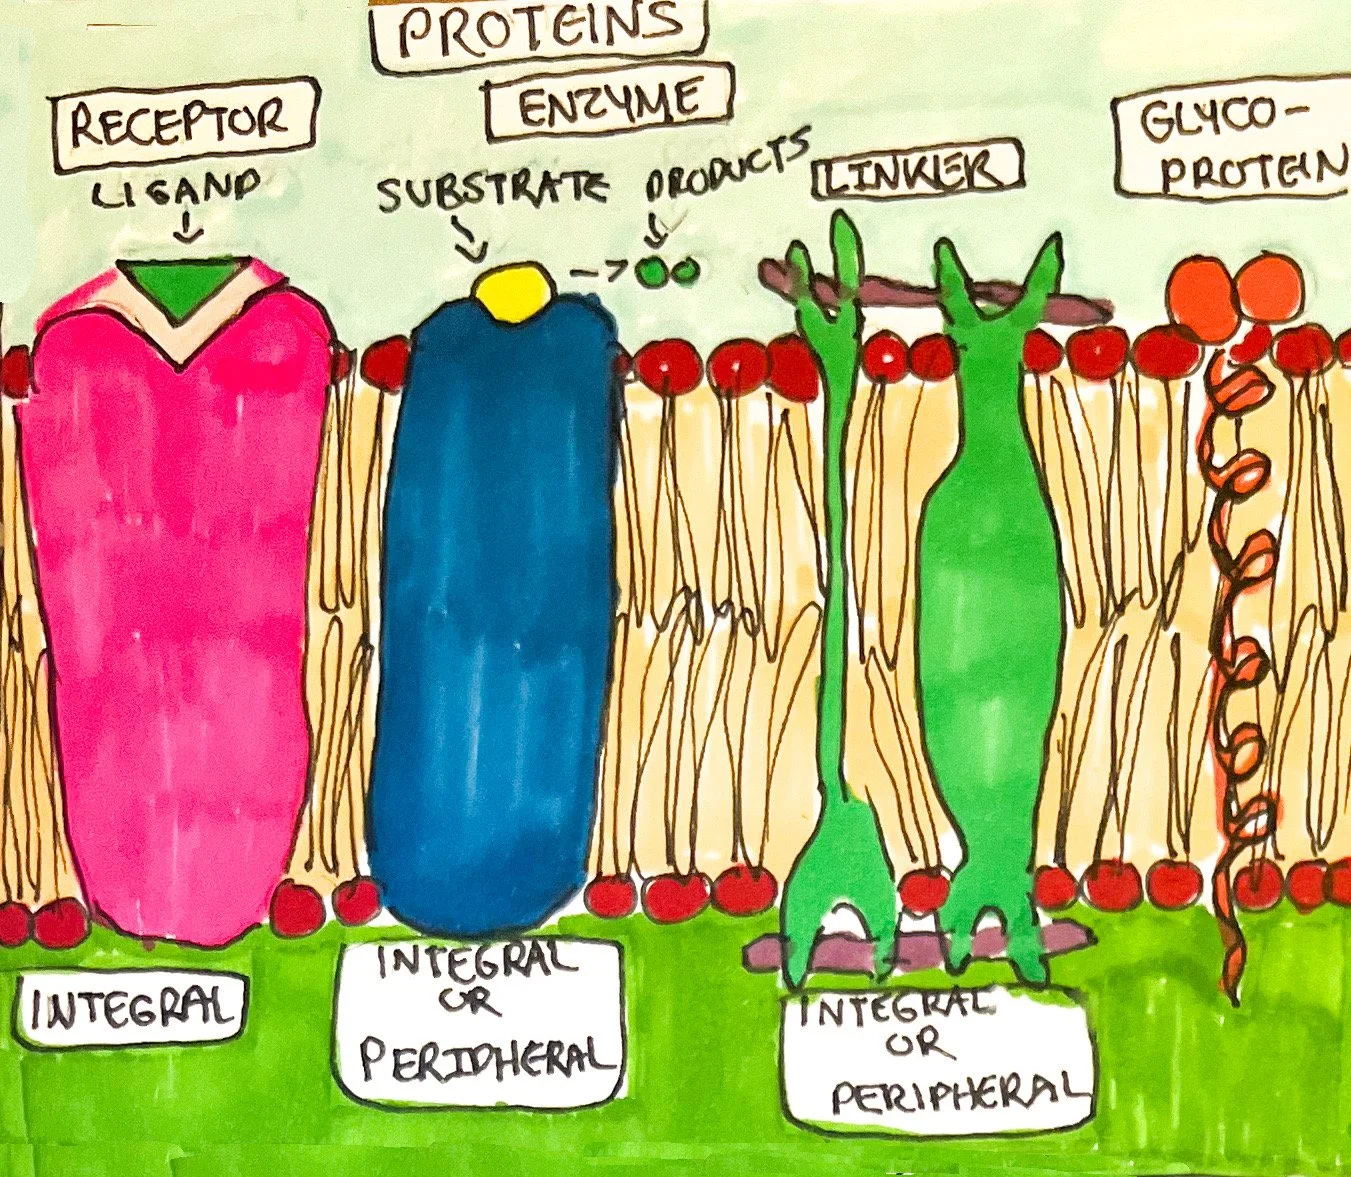 PROTEINS
RECEPTOR
LIGAND
ENZYME
SUBSTRATE
PRODUCTS
LINKER
GLYCO-
PROTEIN
INTEGRAL
INTEGRAL
OR
PERIPHERAL
INTEGRAL
OR
PERIPHERAL